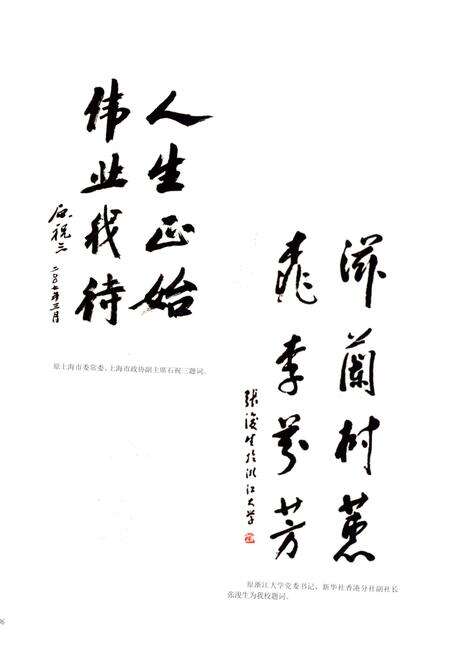 人生正始
伟业我待
石祝三
二〇〇七年三月
原上海市委常委、上海市政协副主席石祝三题词。
滋蘭树蕙
桃李芬芳
张浚生于浙江大学
原浙江大学党委书记,新华社香港分社副社长
张浚生为我校题词。